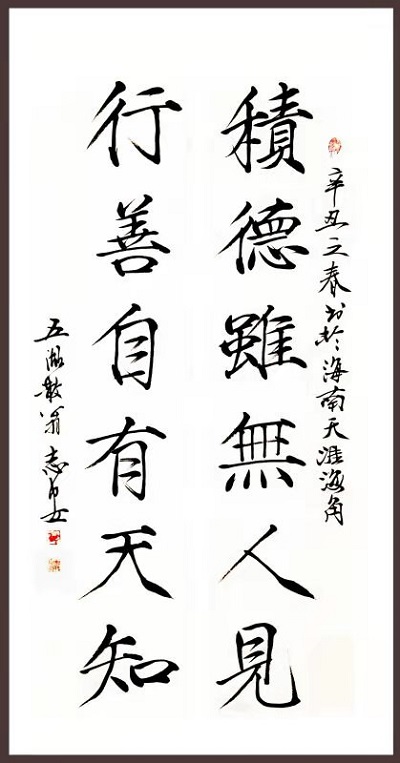 辛丑之春书於海南天涯海角
積德雖無人見
行善自有天知
五湖散翁志安